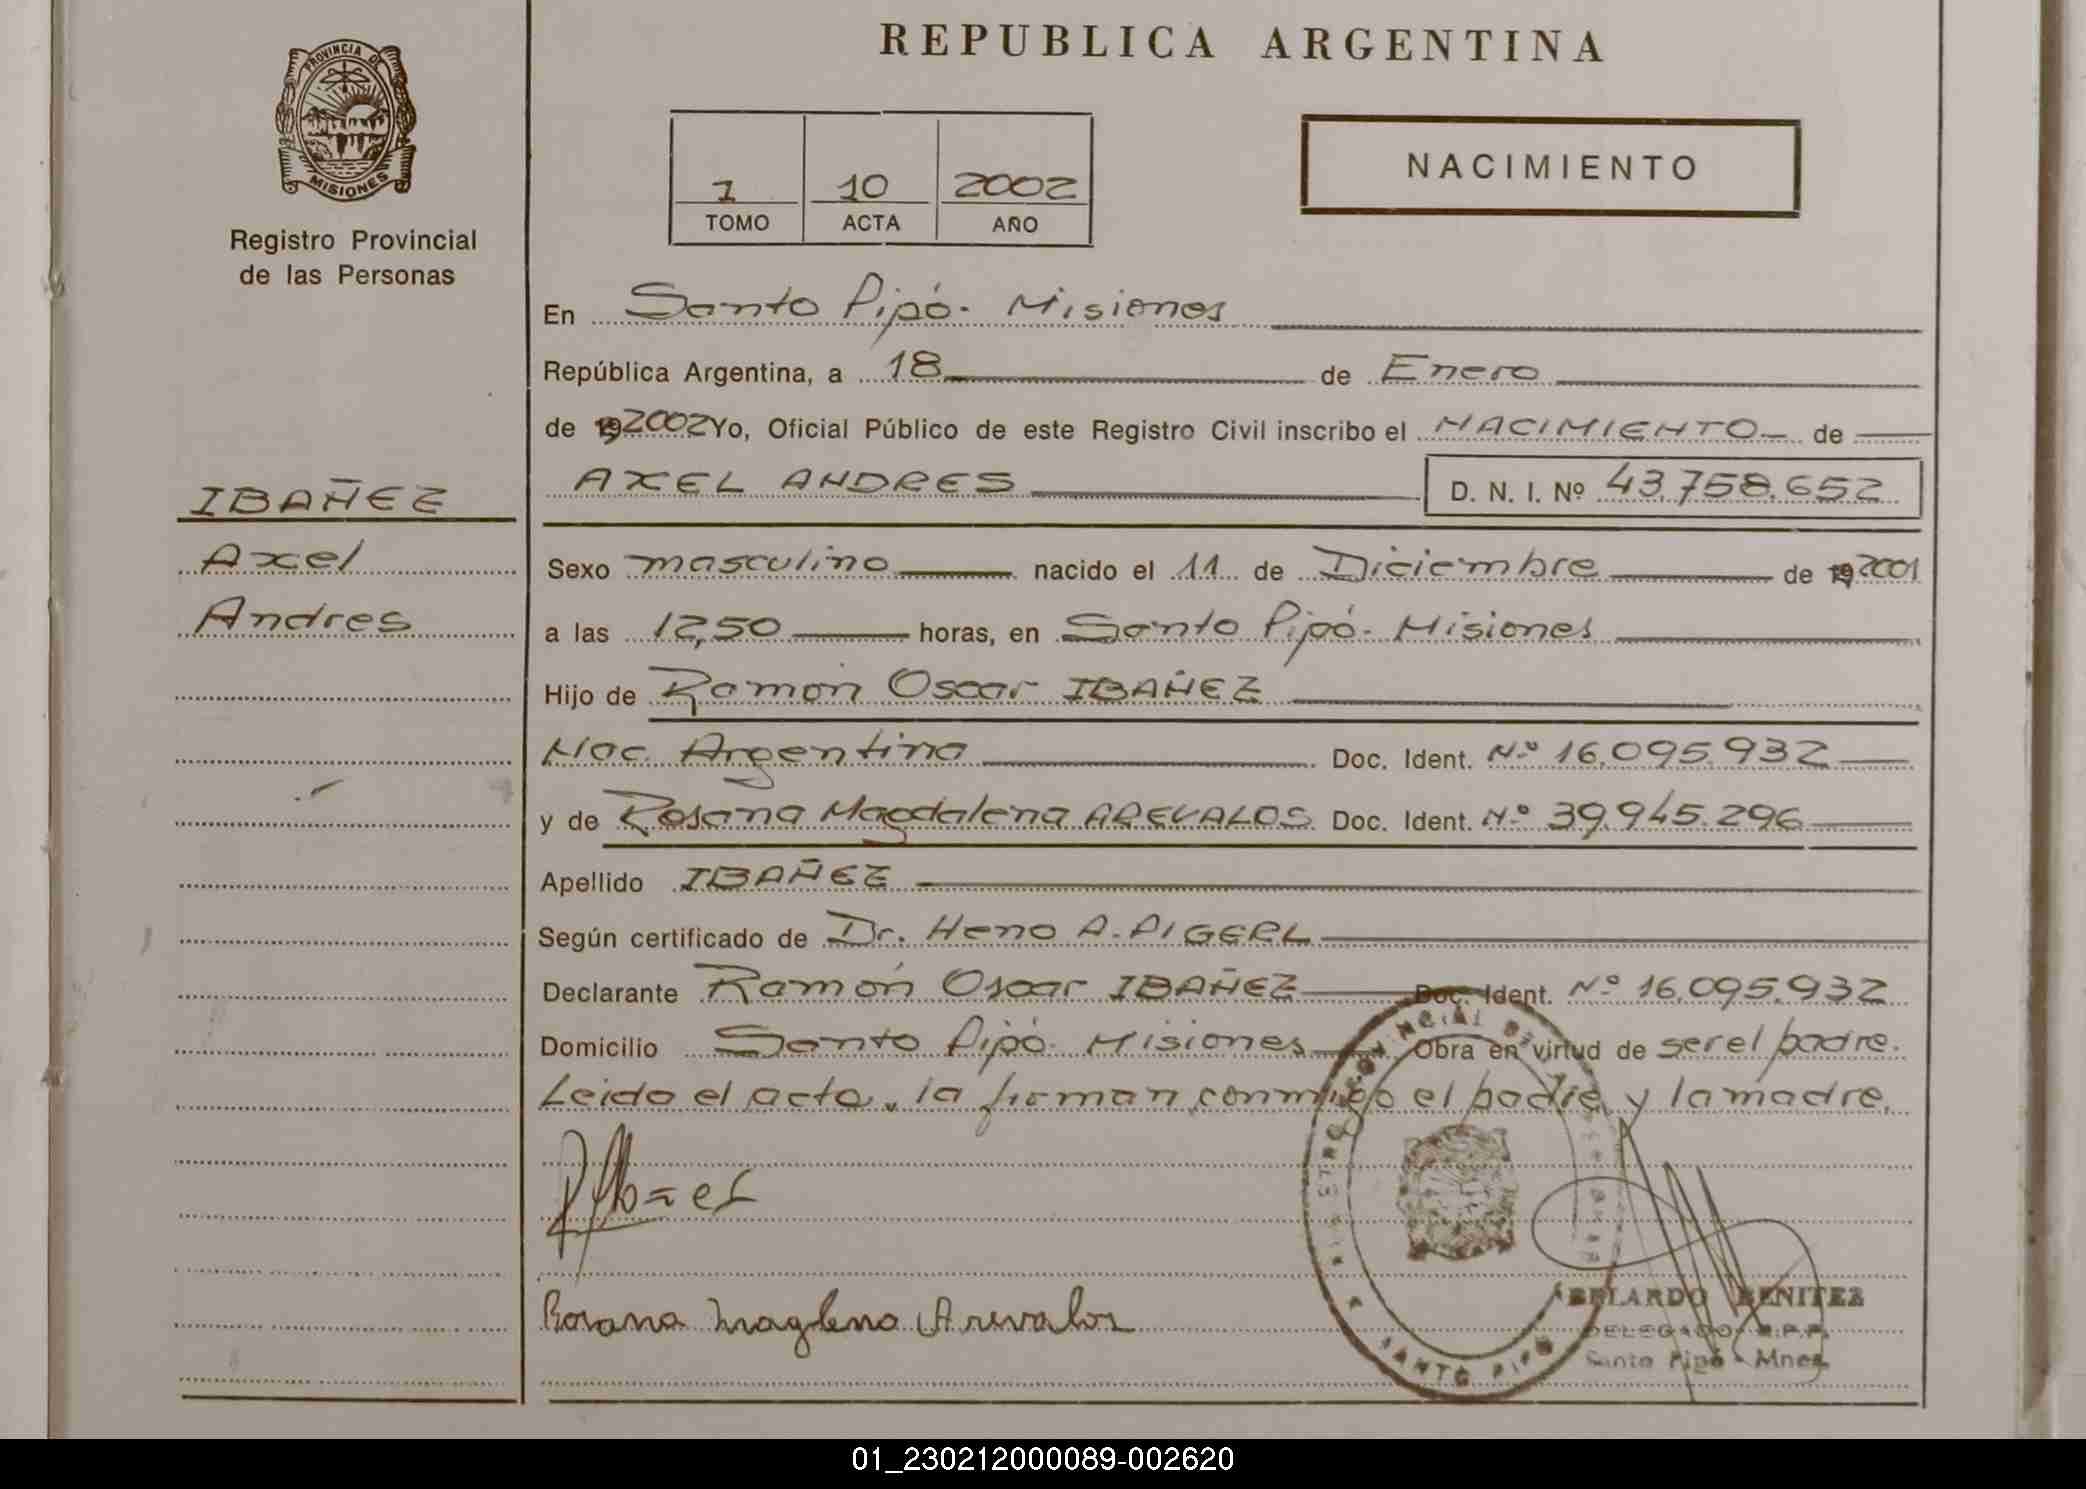 REPUBLICA ARGENTINA
PROVINCIA DE
MISIONES
Registro Provincial
de las Personas
1 10 2002
TOMO ACTA AÑO
NACIMIENTO
En Santo Pipó. Misiones
República Argentina, a 18 de Enero
de 192002 Yo, Oficial Público de este Registro Civil inscribo el NACIMIENTO de
AXEL ANDRES D. N. I. Nº 43.758.652
IBAÑEZ
Axel
Andres
Sexo masculino nacido el 11 de Diciembre de 192001
a las 12,50 horas, en Santo Pipó. Misiones
Hijo de Ramón Oscar IBAÑEZ
Nac. Argentina Doc. Ident. Nº 16.095.932
y de Rosana Magdalena AREVALOS Doc. Ident. Nº 39.945.296
Apellido IBAÑEZ
Según certificado de Dr. Heno A. PIGERL
Declarante Ramón Oscar IBAÑEZ Doc. Ident. Nº 16.095.932
Domicilio Santo Pipó. Misiones Obra en virtud de ser el padre.
Leido el acta, la firman conmigo el padre y la madre.
Rosana Magdlena Arevalos
SANTO PIPÓ
ABELARDO BENITEZ
DELEGADO R.P.P.
Santo Pipó - Mnes.
01_230212000089-002620